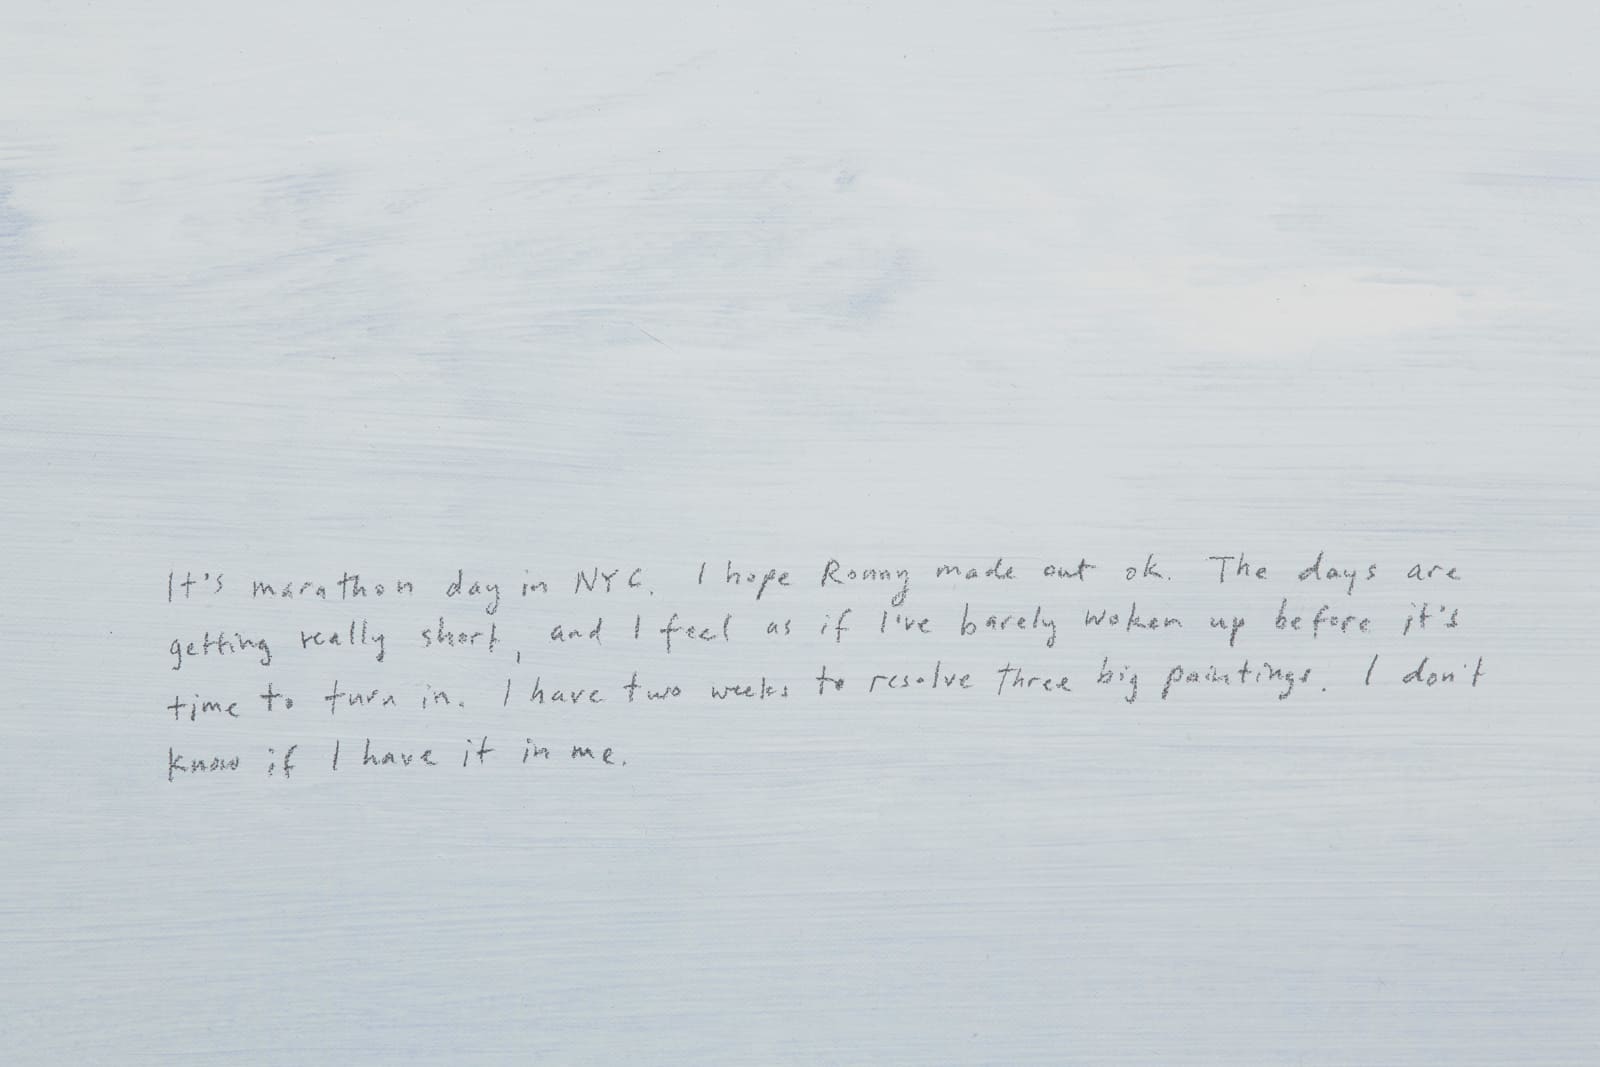 It's marathon day in NYC. I hope Ronny made out ok. The days are
getting really short, and I feel as if I've barely woken up before it's
time to turn in. I have two weeks to resolve three big paintings. I don't
know if I have it in me.